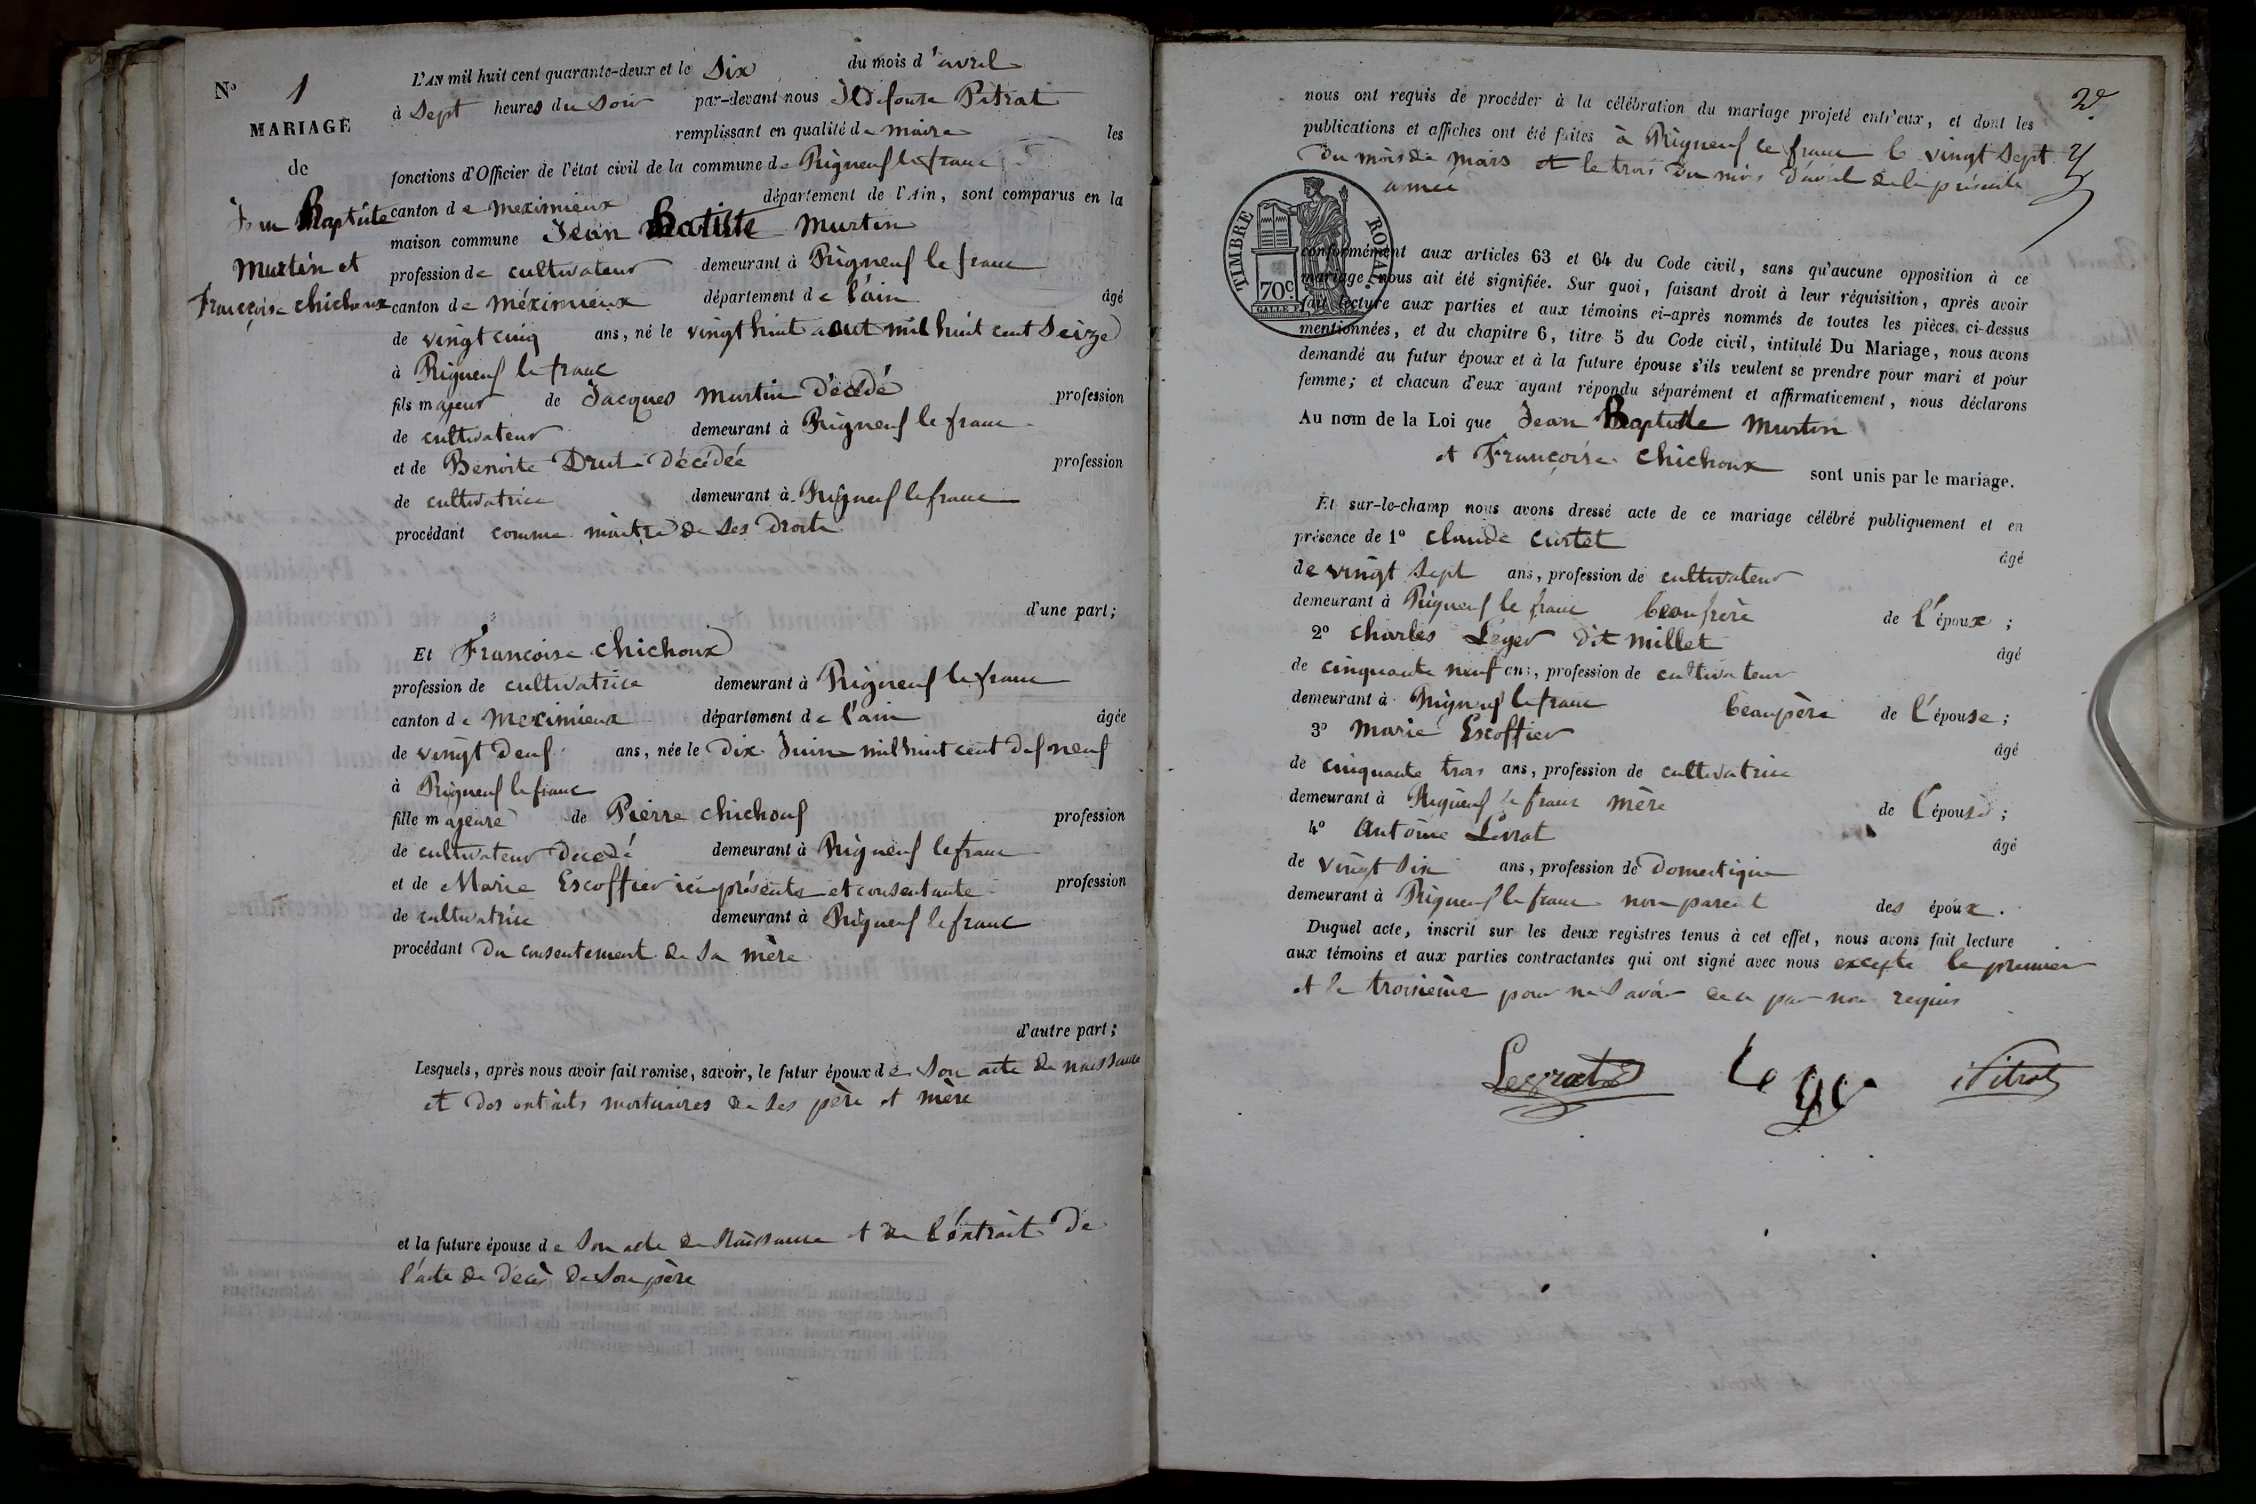 N° 1
MARIAGE
de
Jean Baptiste
Murtin et
Françoise chichoux
L'AN mil huit cent quarante-deux et le Six du mois d'avril
à Sept heures du Soir par-devant nous Ildefonse Pitrat
remplissant en qualité de maire les
fonctions d'Officier de l'état civil de la commune de Rigneux le franc
canton de meximieux département de l'Ain, sont comparus en la
maison commune Jean Batiste Murtin
profession de cultivateur demeurant à Rigneux le franc
canton de méximieux département de l'ain âgé
de vingt cinq ans, né le vingt huit aout mil huit cent Seize
à Rigneux le franc
fils majeur de Jacques Murtin Décédé profession
de cultivateur demeurant à Rigneux le franc
et de Benoite Drut Décédée profession
de cultivatrice demeurant à Rigneux le franc
procédant comme maitre de ses Droits
d'une part;
Et Françoise chichoux
profession de cultivatrice demeurant à Rigneux le franc
canton de meximieux département de l'ain âgée
de vingt deux ans, née le Dix Juin mil huit cent dif neuf
à Rigneux le franc
fille majeure de Pierre chichoux profession
de cultivateur Decedé demeurant à Rigneux le franc
et de Marie Escoffier ici présente et consentante profession
de cultivatrice demeurant à Rigneux le franc
procédant Du consentement de sa mère
d'autre part;
Lesquels, après nous avoir fait remise, savoir, le futur époux de Son acte de naissance
et des extraits mortuaires de ses père et mère
et la future épouse de Son acte de Naissance et de l'extrait De
l'acte de décès de son père
2e
nous ont requis de procéder à la célébration du mariage projeté entr'eux, et dont les
publications et affiches ont été faites à Rigneux le franc le vingt Sept
Du mois de mars et le trois Du mois d'avril de la présente
année
TIMBRE ROYAL
70c
conformément aux articles 63 et 64 du Code civil, sans qu'aucune opposition à ce
mariage nous ait été signifiée. Sur quoi, faisant droit à leur réquisition, après avoir
fait lecture aux parties et aux témoins ci-après nommés de toutes les pièces ci-dessus
mentionnées, et du chapitre 6, titre 5 du Code civil, intitulé Du Mariage, nous avons
demandé au futur époux et à la future épouse s'ils veulent se prendre pour mari et pour
femme; et chacun d'eux ayant répondu séparément et affirmativement, nous déclarons
Au nom de la Loi que Jean Baptiste Murtin
et Françoise chichoux sont unis par le mariage.
Et sur-le-champ nous avons dressé acte de ce mariage célébré publiquement et en
présence de 1° claude curtet âgé
de vingt Sept ans, profession de cultivateur
demeurant à Rigneux le franc beaufrère de l'époux;
2° charles Léger Dit millet âgé
de cinquante neuf ans, profession de cultivateur
demeurant à Rigneux le franc beaupère de l'épouse;
3° Marie Escoffier âgé
de cinquante trois ans, profession de cultivatrice
demeurant à Rigneux le franc mère de l'épouse;
4° Antoine Livrat âgé
de vingt Six ans, profession de Domestique
demeurant à Rigneux le franc non parent des époux.
Duquel acte, inscrit sur les deux registres tenus à cet effet, nous avons fait lecture
aux témoins et aux parties contractantes qui ont signé avec nous excepté le premier
et le troisième pour ne Savoir de ce par nous requis
Lege
Pitrat